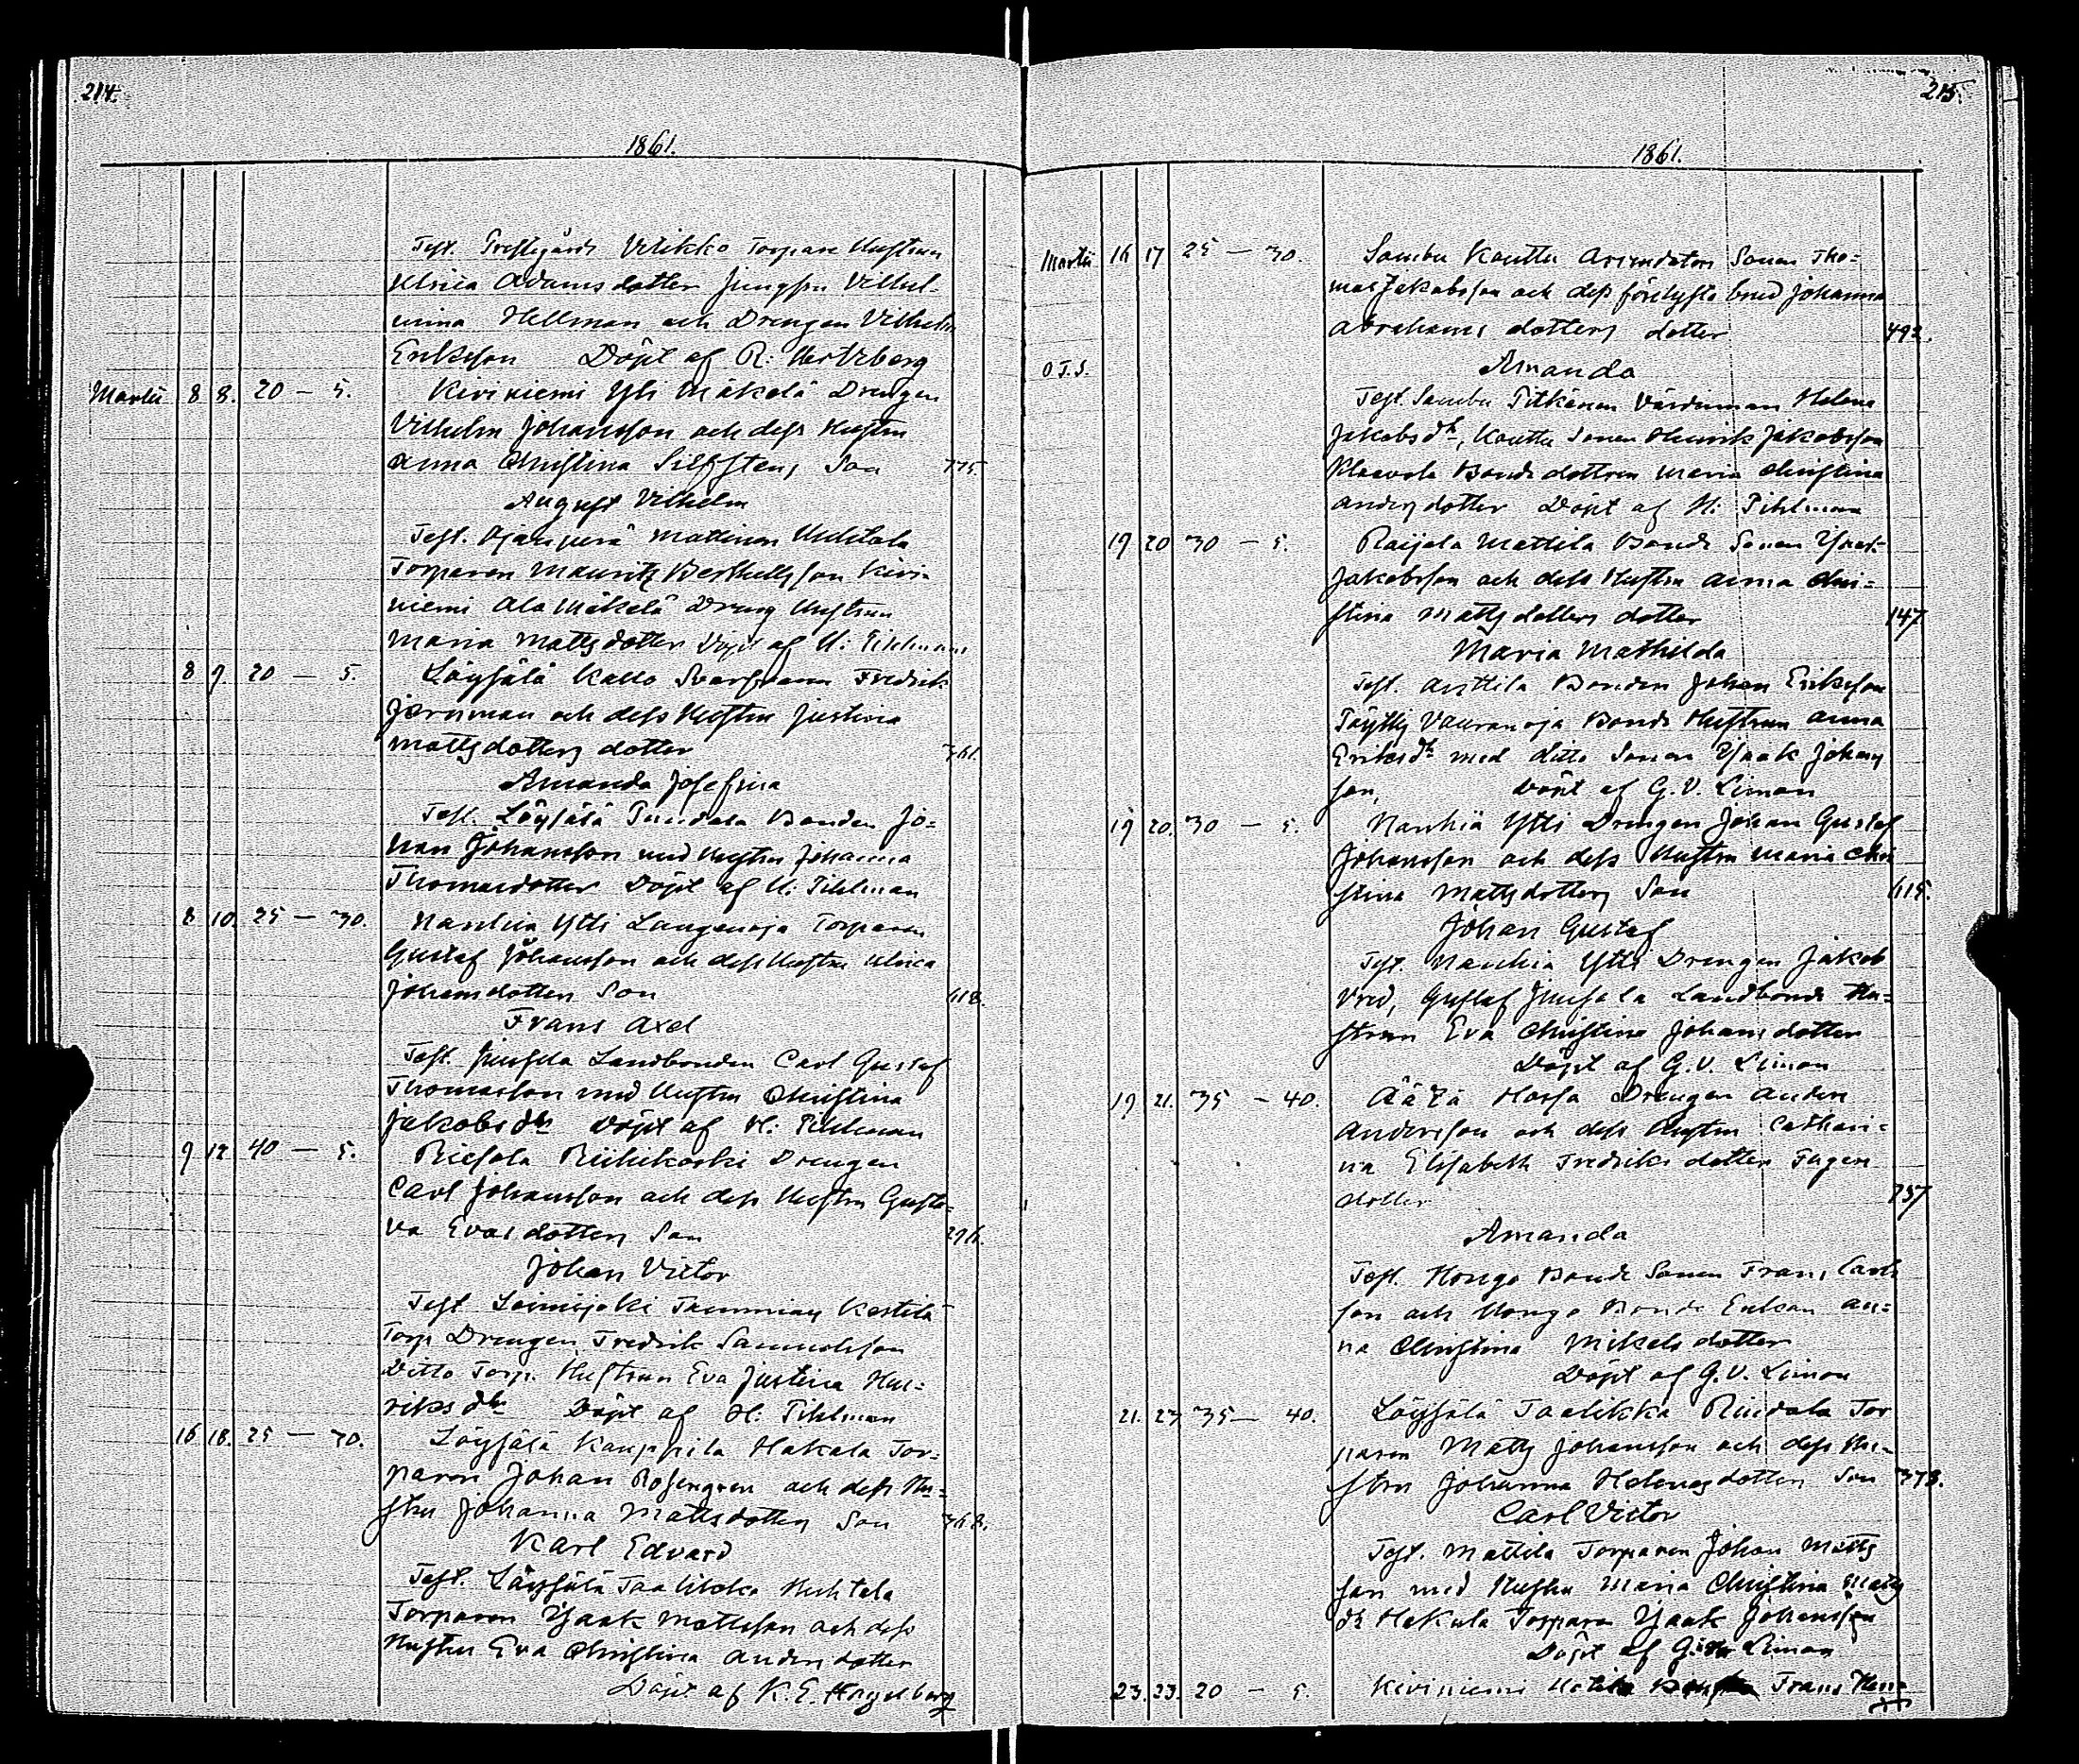 214.
1861.
Test. Prestgårds Vilikko Torpare Hustrun
Ulrica Adamsdotter Jungfru Vilhel-
mina Hellman och Drengen Vilhelm
Eriksson Döpt af R: Hertzberg
Martii 8 8. 20 – 5. Kiviniemi Yli Mäkelä Drengen
Vilhelm Johansson och dess Hustru
Anna Christina Silfstens Son 775
August Vilhelm
Test. Ojanperä Mattinen Uudstalo
Torparen Mauritz Berthellsson Kivi-
niemi Ala Mäkelä Dreng Hustrun
Maria Mattsdotter Döpt af H: Pihlman
8 9. 20 – 5. Löysälä Kallo Svarfvaren Fredrik
Jernman och dess Hustru Justina
Mattsdotters dotter 361.
Amanda Josefina
Test. Löysälä Bonden Jo-
han Johansson med Hustru Johanna
Thomasdotter Döpt af H: Pihlman
8 10. 25 – 30. Nanhia Ytti Laugenoja Torparen
Gustaf Johansson och dess Hustru Ulrica
Johansdotters Son 618.
Frans Axel
Test. Jussila Landbonden Carl Gustaf
Thomasson med Hustru Christina
Jakobsdr Döpt af H: Pihlman
9 12 40 – 5. Riesola Riihikoski Drengen
Carl Johansson och dess Hustru Gusta-
va Evasdotters Son 296.
Johan Victor
Test Loimijoki Tammiais Kestilä
Torp Drengen Fredrik Samuelsson
Ditto Torp. Hustrun Eva Justina Hen-
riksdtr Döpt af H: Pihlman
16 18. 25 – 30. Löysälä Kauppila Hakala Tor-
paren Johan Rosengren och dess Hu-
stru Johanna Mattsdotters Son 368.
Karl Edvard
Test. Löysälä Taalikka Huhtala
Torparen Isaak Mattsson och dess
Hustru Eva Christina Andersdotter
Döpt af K. E. Hagelberg
215.
1861.
Martii 16 17 25 – 30. Sambu Kouttu Arendators Sonen Tho-
mas Jakobsson och dess förelyste brud Johanna
Abrahams dotters dotter 492.
O.T.S. Amanda
Test. Sambu Pitkänen Värdinnan Helena
Jakobsdr, Kouttu Sonen Henrik Jakobsson
Klaavola Bonde dottren Maria Christina
Andersdotter Döpt af H: Pihlman
19 20 30 – 5. Raijala Mattila Bonde Sonen Isaak
Jakobsson och dess Hustru Anna Chri-
stina Mattsdotters dotter 147
Maria Mathilda
Test. Anttila Bonden Johan Eriksson
Vauranoja Bonde Hustrun Anna
Eriksdr med ditto Sonen Isaak Johans
son, Döpt af G. V. Limon
19 20. 30 – 5. Nanhia Ytti Drengen Johan Gustaf
Johansson och dess Hustru Maria Chri
stina Mattsdotters Son 615.
Johan Gustaf
Test. Nanhia Ytti Drengen Jakob
Vred, Gustaf Jussila Landbonde Hu-
strun Eva Christina Johansdotter
Döpt af G. V. Limon
19 21. 35 – 40. Hossa Drengen Anders
Andersson och dess Hustru Cathari-
na Elisabeth Fredriks dotter Fagers
dotter 757
Amanda
Test. Hongo Bonde Sonen Frans Carls
son och Hongo Bonde Enkan An-
na Christina Mikelsdotter
Döpt af G. V. Limon
21. 23 35 – 40. Löysälä Taalikka Riidala Tor
paren Matts Johansson och dess Hu-
stru Johanna Helenasdotters Son 373.
Carl Victor
Test. Mattila Torparen Johan Matts
son med Hustru Maria Christina Matts
dr Hakula Torparen Isaak Johansson
Döpt af Limon
23. 23. 20 – 5. Kiviniemi Frans Hen-